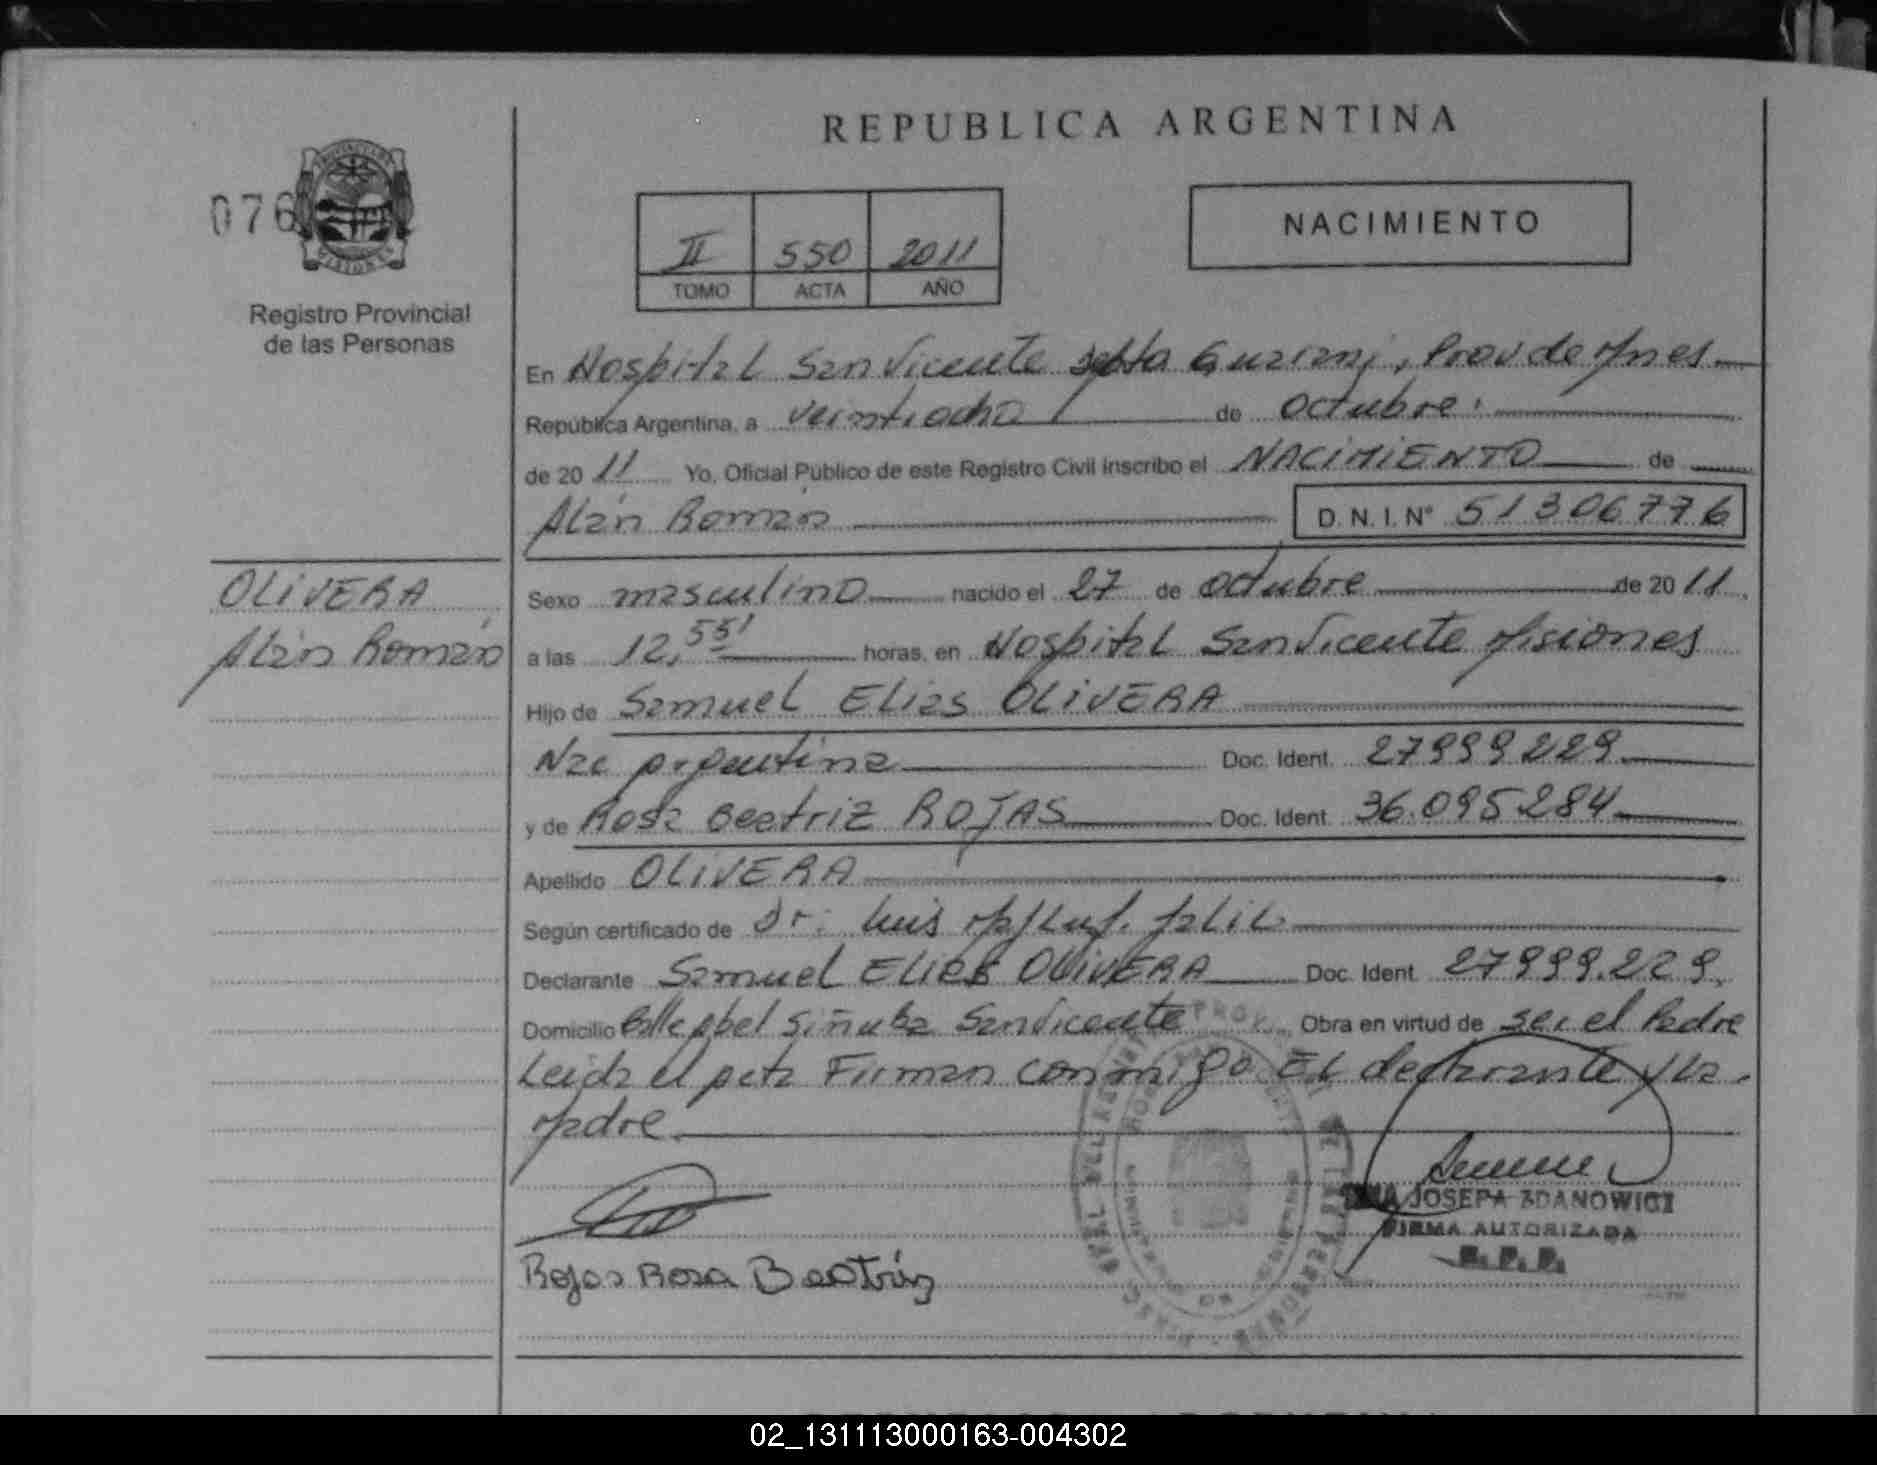 REPUBLICA ARGENTINA
076
PROVINCIA DE
MISIONES
Registro Provincial
de las Personas
II 550 2011
TOMO ACTA AÑO
NACIMIENTO
En Hospital San Vicente Guarani, Prov de Mnes
República Argentina, a veintiocho de Octubre
de 20 11 Yo, Oficial Público de este Registro Civil inscribo el NACIMIENTO de
Alan Román D.N.I. Nº 51306776
OLIVERA
Alan Román
Sexo masculino nacido el 27 de octubre de 20 11
a las 12,55' horas, en Hospital San Vicente Misiones
Hijo de Samuel Elias OLIVERA
Nac Argentina Doc. Ident. 27999229
y de Rosa Beatriz ROJAS Doc. Ident. 36.095284
Apellido OLIVERA
Según certificado de Dr. Luis
Declarante Samuel Elias OLIVERA Doc. Ident. 27999.229
Domicilio Calle Abel San Vicente Obra en virtud de ser el Padre
Leida el acta Firman conmigo EL declarante y La
Madre
JOSEFA ZDANOWICZ
FIRMA AUTORIZADA
R.P.P.
Rojas Rosa Beatríz
02_131113000163-004302